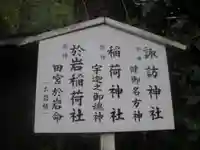 諏訪神社
祭神 健御名方神
稲荷神社
祭神 宇迦之御魂神
於岩稲荷社
祭神 田宮於岩命